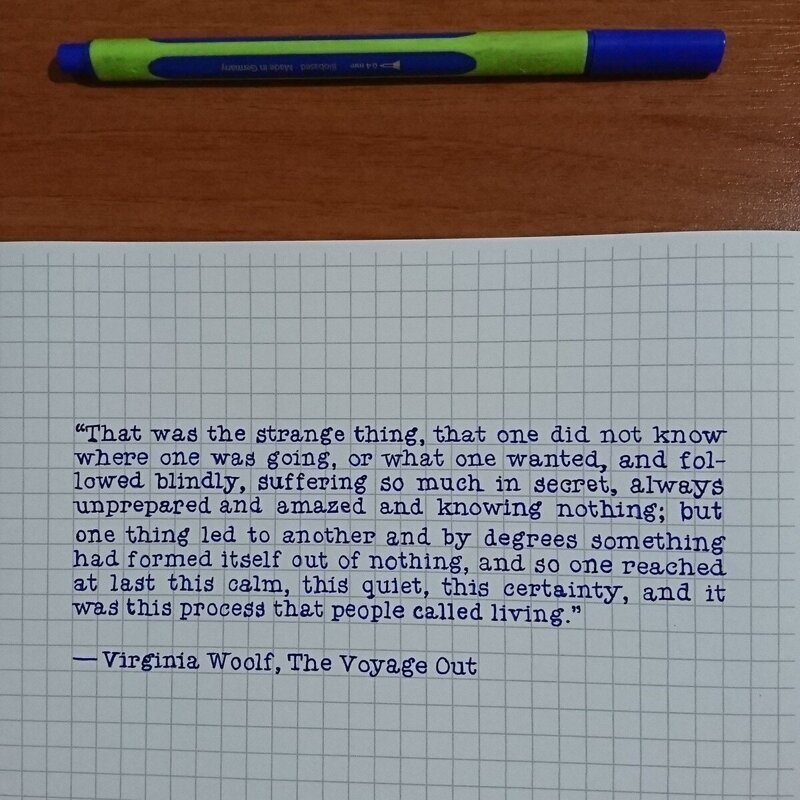 0.4 mm Biobased Made in Germany
“That was the strange thing, that one did not know
where one was going, or what one wanted, and fol-
lowed blindly, suffering so much in secret, always
unprepared and amazed and knowing nothing; but
one thing led to another and by degrees something
had formed itself out of nothing, and so one reached
at last this calm, this quiet, this certainty, and it
was this process that people called living.”
— Virginia Woolf, The Voyage Out